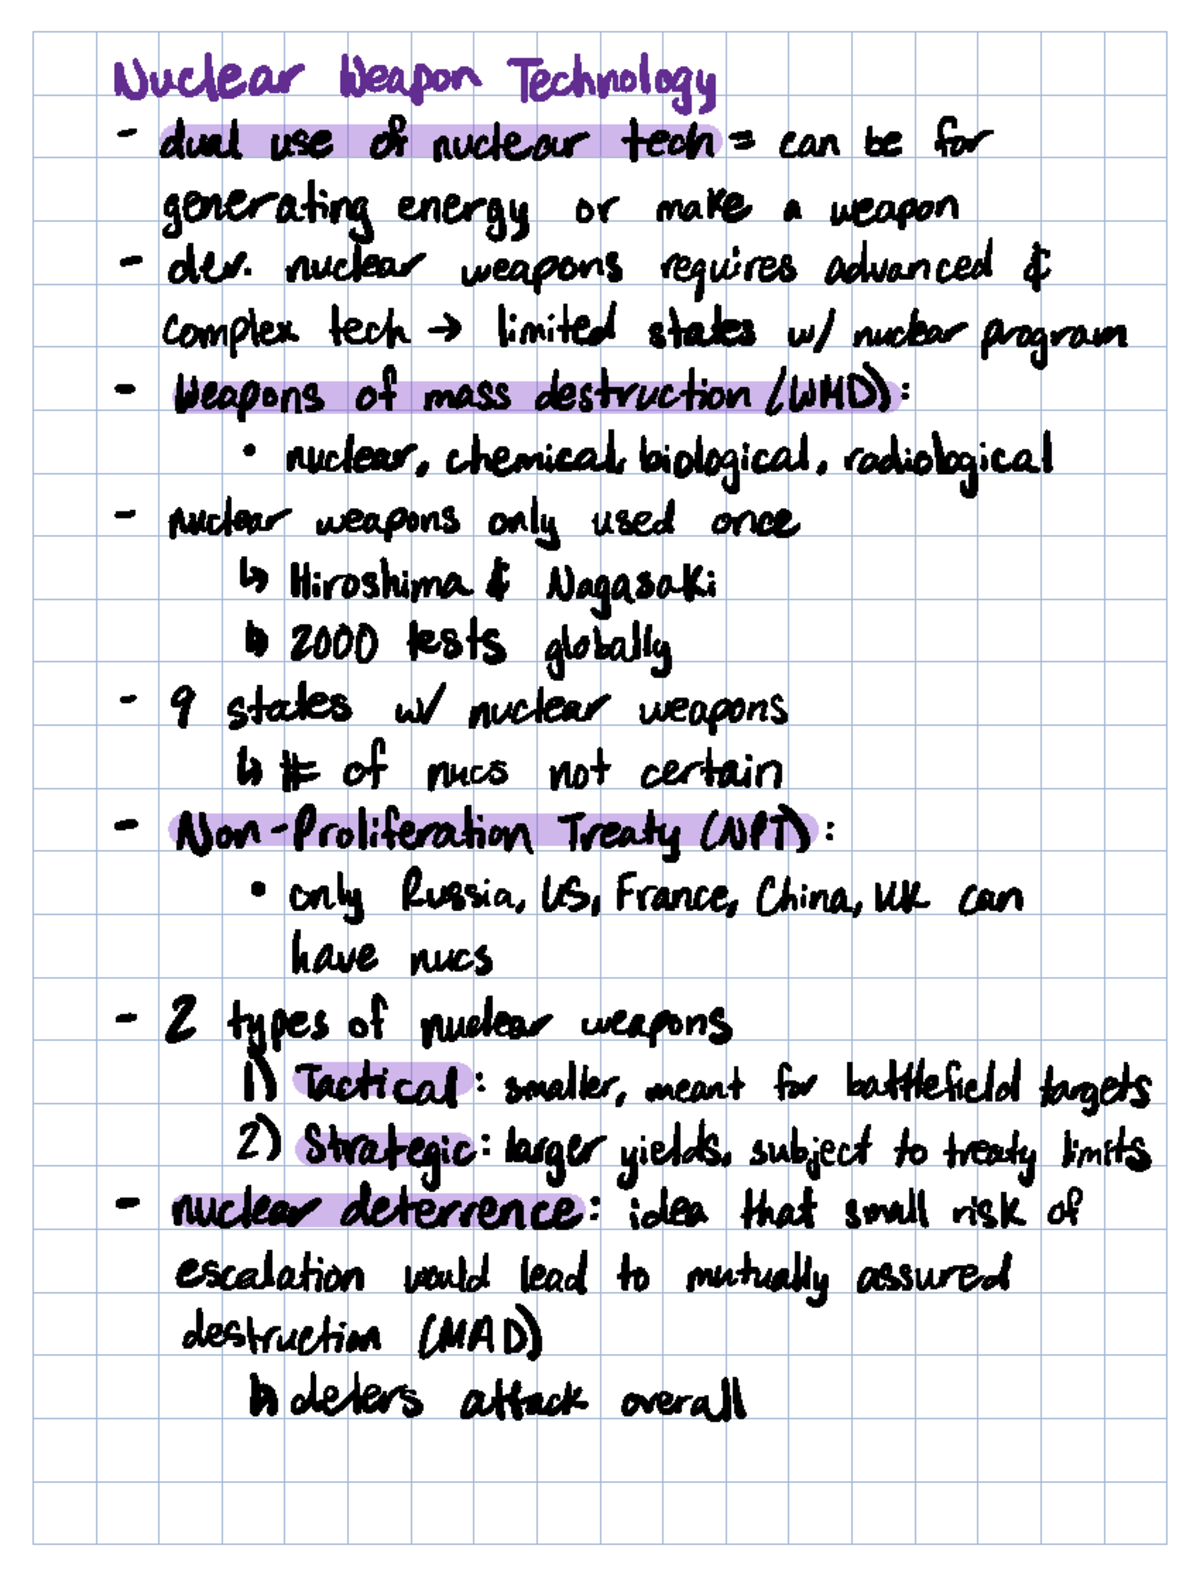 Nuclear Weapon Technology
- dual use of nuclear tech = can be for
generating energy or make a weapon
- dev. nuclear weapons requires advanced &
complex tech → limited states w/ nuclear program
- Weapons of mass destruction (WMD):
• nuclear, chemical, biological, radiological
- nuclear weapons only used once
↳ Hiroshima & Nagasaki
↳ 2000 tests globally
- 9 states w/ nuclear weapons
↳ # of nucs not certain
- Non-Proliferation Treaty (NPT):
• only Russia, US, France, China, UK can
have nucs
- 2 types of nuclear weapons
1) Tactical: smaller, meant for battlefield targets
2) Strategic: larger yields, subject to treaty limits
- nuclear deterrence: idea that small risk of
escalation would lead to mutually assured
destruction (MAD)
↳ deters attack overall